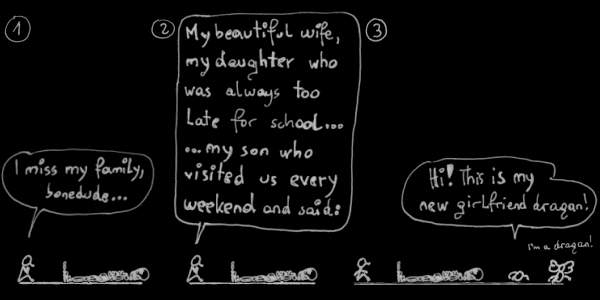 1
I miss my family,
bonedude...
2
My beautiful wife,
my daughter who
was always too
late for school...
...my son who
visited us every
weekend and said:
3
Hi! This is my
new girlfriend dragan!
I'm a dragan!